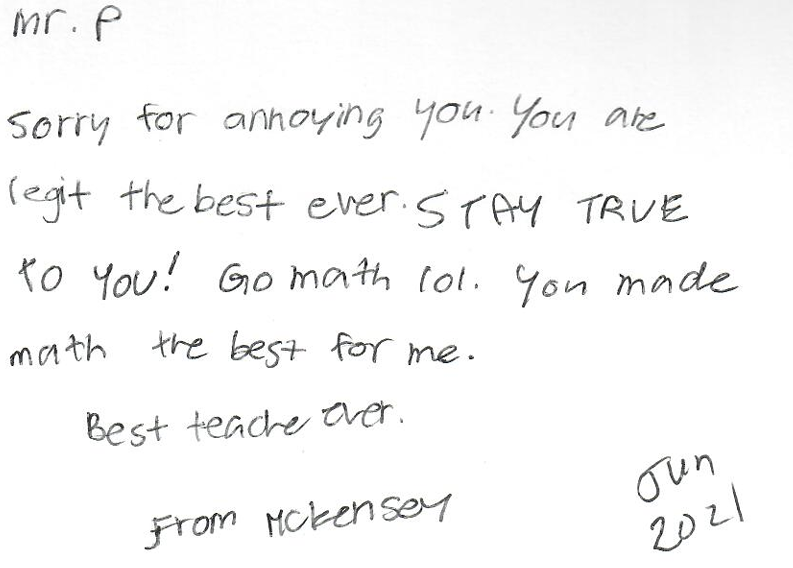 Mr. P
Sorry for annoying you. You are
legit the best ever. STAY TRUE
to YOU! Go math lol. You made
math the best for me.
Best teache ever.
From Mckensey
Jun
2021